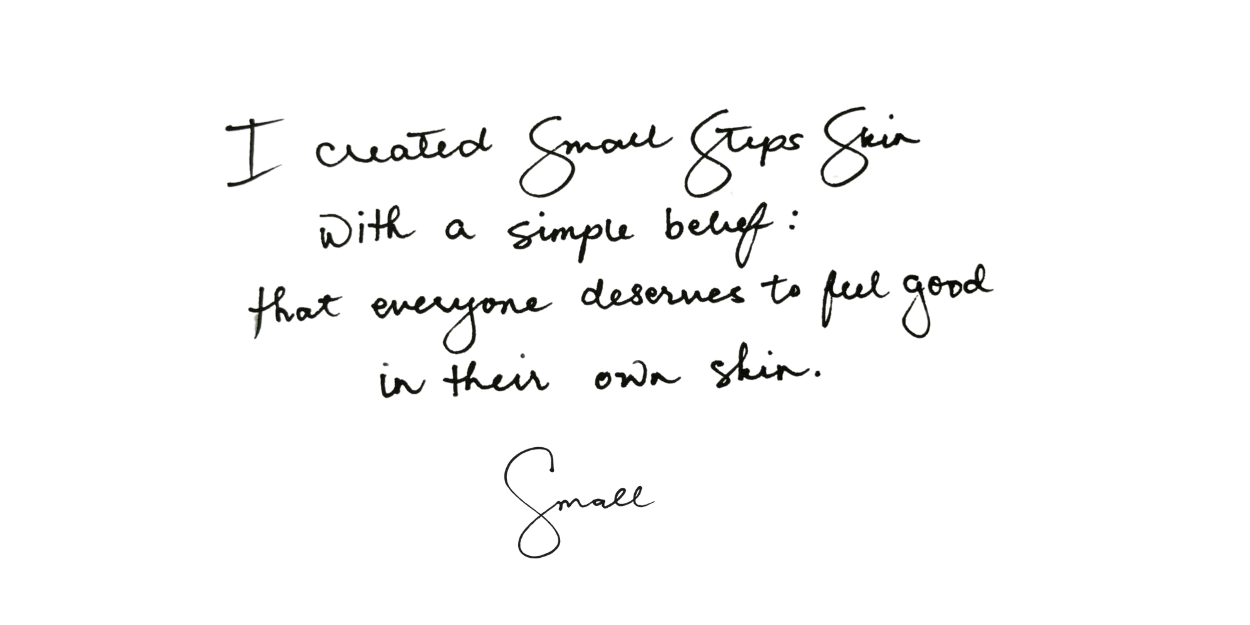 I created Small Steps Skin
with a simple belief:
that everyone deserves to feel good
in their own skin.
Small